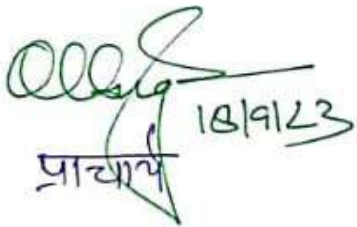 18/9/23
प्राचार्य